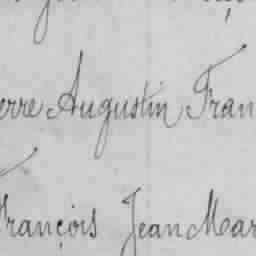 erre Augustin Fran
François Jean Mar